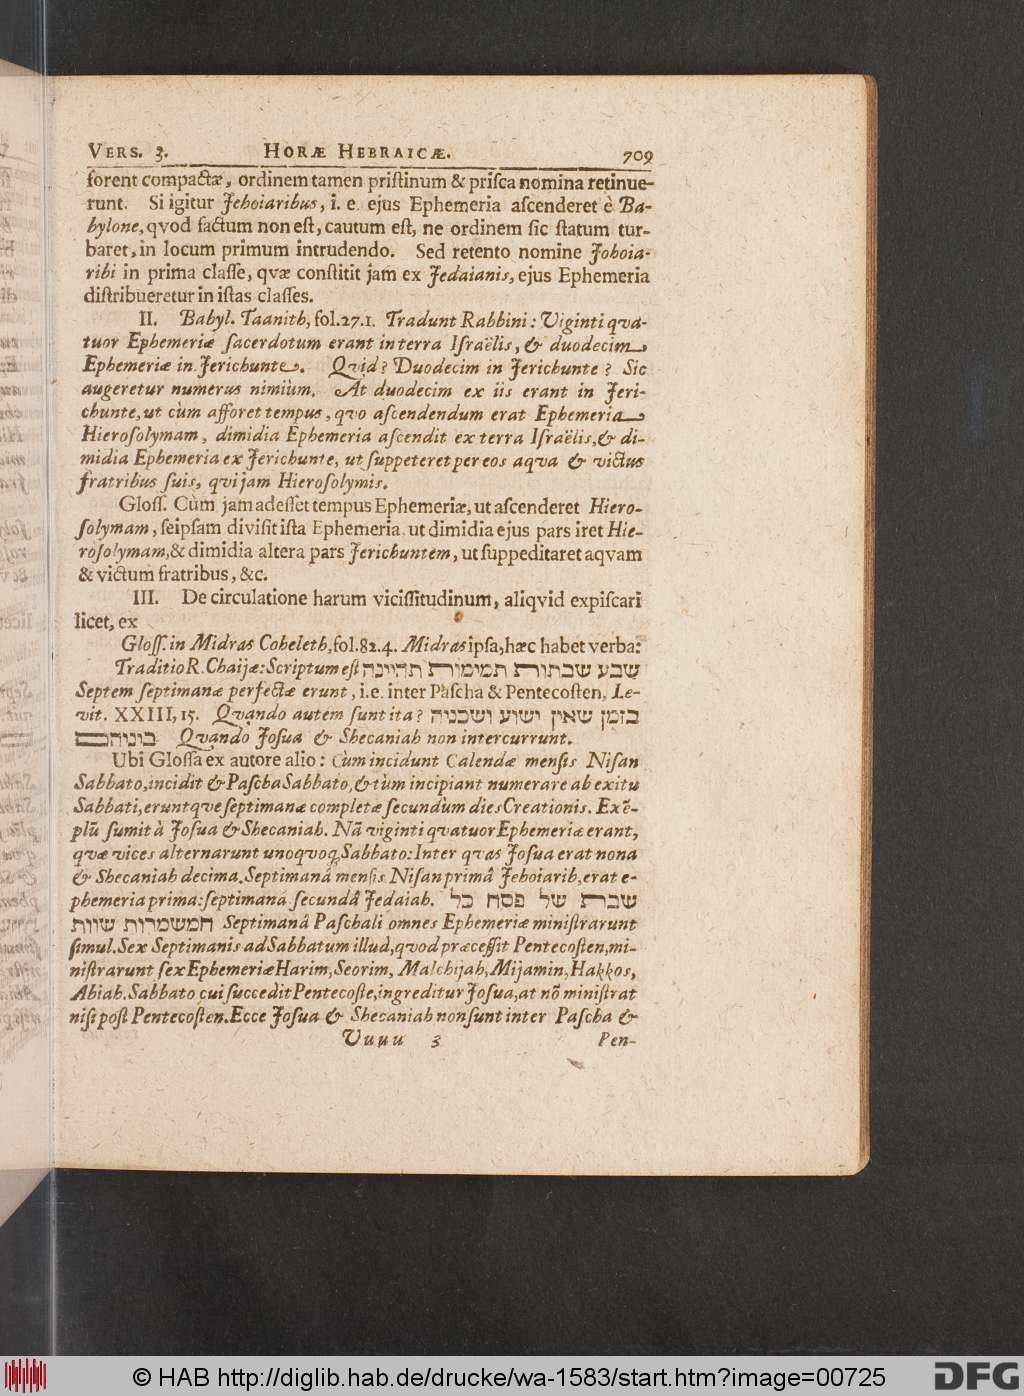 VERS. 3. HORÆ HEBRAICÆ. 709
forent compactæ, ordinem tamen priſtinum & priſca nomina retinue-
runt. Si igitur Jehoiaribus, i. e. ejus Ephemeria aſcenderet è Ba-
bylone, qvod factum non eſt, cautum eſt, ne ordinem ſic ſtatum tur-
baret, in locum primum intrudendo. Sed retento nomine Johoia-
ribi in prima claſſe, qvæ conſtitit jam ex Jedaianis, ejus Ephemeria
diſtribueretur in iſtas claſſes.
II. Babyl. Taanith, fol. 27. 1. Tradunt Rabbini: Viginti qva-
tuor Ephemeriæ ſacerdotum erant in terra Iſraëlis, & duodecim
Ephemeriæ in Jerichunte. Qvid? Duodecim in Jerichunte? Sic
augeretur numerus nimium. At duodecim ex iis erant in Jeri-
chunte, ut cùm afforet tempus, qvo aſcendendum erat Ephemeria
Hieroſolymam, dimidia Ephemeria aſcendit ex terra Iſraëlis, & di-
midia Ephemeria ex Jerichunte, ut ſuppeteret per eos aqva & victus
fratribus ſuis, qvi jam Hieroſolymis.
Gloſſ. Cùm jam adeſſet tempus Ephemeriæ, ut aſcenderet Hiero-
ſolymam, ſeipſam diviſit iſta Ephemeria, ut dimidia ejus pars iret Hie-
roſolymam, & dimidia altera pars Jerichuntem, ut ſuppeditaret aqvam
& victum fratribus, &c.
III. De circulatione harum viciſſitudinum, aliqvid expiſcari
licet, ex
Gloſſ. in Midras Coheleth, fol. 82. 4. Midras ipſa, hæc habet verba:
Traditio R. Chaijæ: Scriptum eſt שבע שבתות תמימות תהיינה
Septem ſeptimanæ perfectæ erunt, i.e. inter Paſcha & Pentecoſten, Le-
vit. XXIII, 15. Qvando autem ſunt ita? בזמן שאין ישוע ושכניה
ביניהם Qvando Joſua & Shecaniah non intercurrunt.
Ubi Gloſſa ex autore alio: Cùm incidunt Calendæ menſis Niſan
Sabbato, incidit & Paſcha Sabbato, & tùm incipiant numerare ab exitu
Sabbati, eruntqve ſeptimanæ completæ ſecundùm dies Creationis. Exē-
plū ſumit à Joſua & Shecaniah. Nã viginti qvatuor Ephemeriæ erant,
qvæ vices alternarunt unoqvoq; Sabbato: Inter qvas Joſua erat nona
& Shecaniah decima. Septimanâ menſis Niſan primâ Jehoiarib, erat e-
phemeria prima: ſeptimanâ ſecundâ Jedaiah. שברת של פסח כל
חמשמרות שוות Septimanâ Paſchali omnes Ephemeriæ miniſtrarunt
ſimul. Sex Septimanis ad Sabbatum illud, qvod præceſſit Pentecoſten, mi-
niſtrarunt ſex Ephemeriæ Harim, Seorim, Malchijah, Mijamin, Hakkos,
Abiah. Sabbato cui ſuccedit Pentecoſte, ingreditur Joſua, at nõ miniſtrat
niſi poſt Pentecoſten. Ecce Joſua & Shecaniah non ſunt inter Paſcha &
Vuuu 3 Pen-
© HAB http://diglib.hab.de/drucke/wa-1583/start.htm?image=00725
DFG